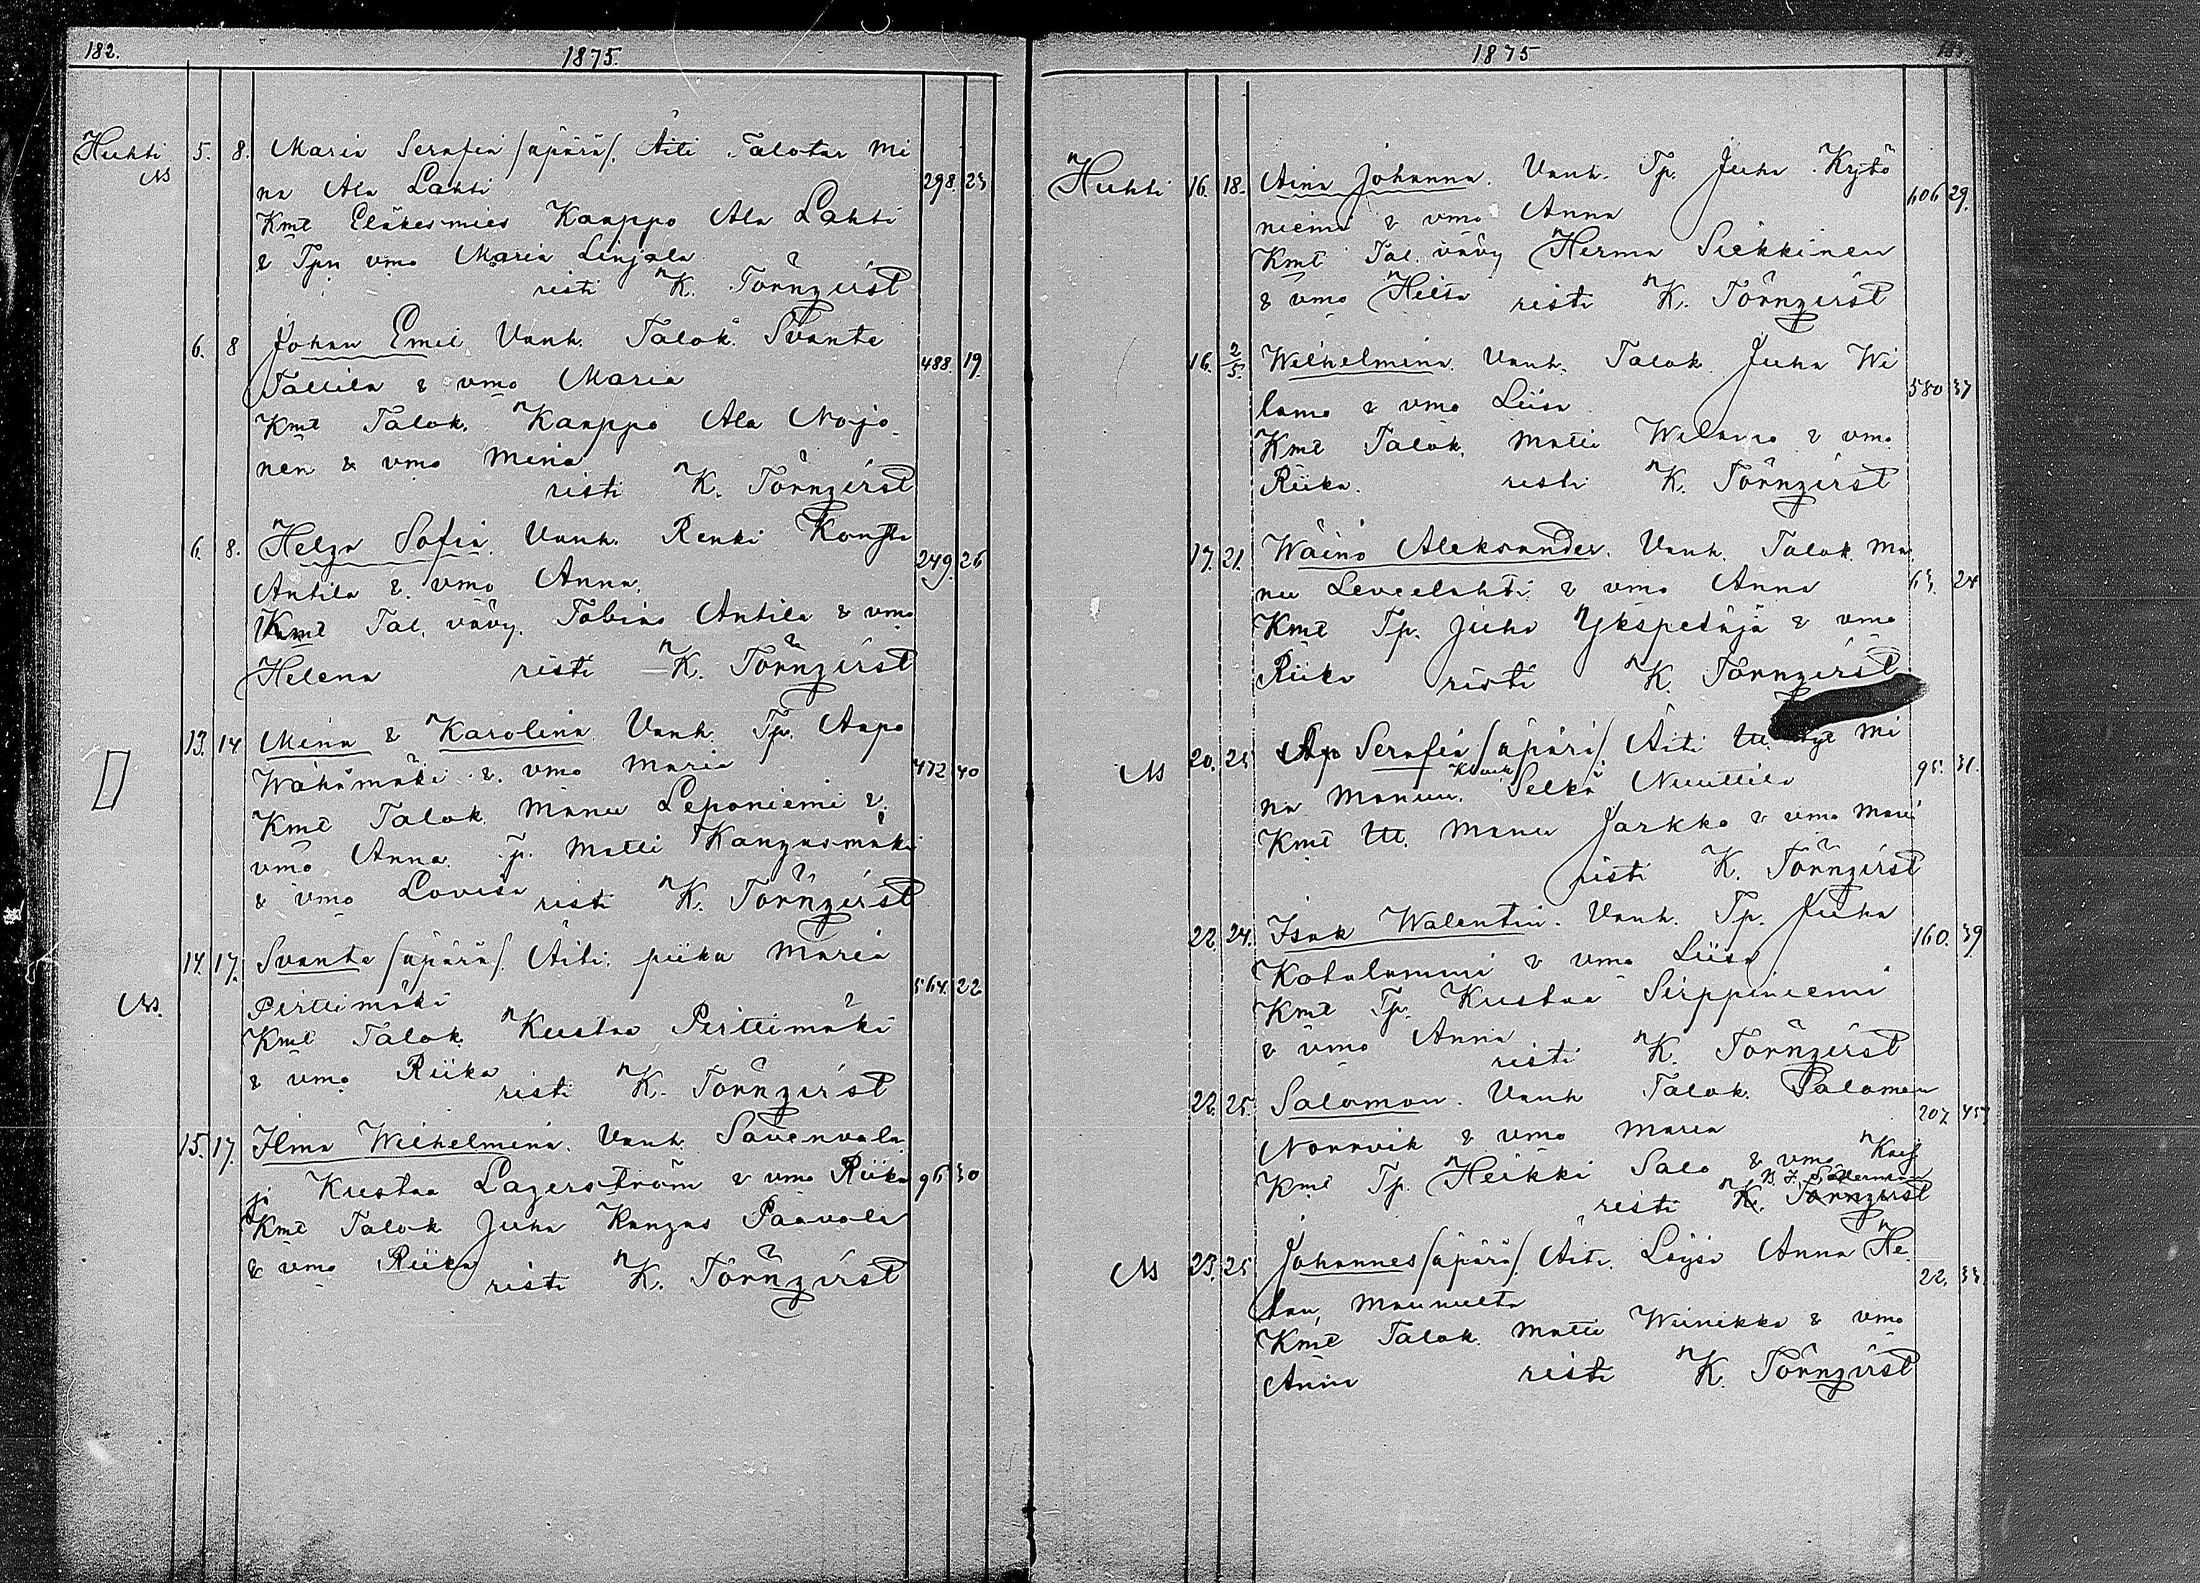 182.
1875.
Huhti 5. 8. Maria Serafia /äpärä/. Äiti Talotar Mi
NB na Ala Lahti 298. 23
Kmt Eläkesmies Kaappo Ala Lahti
& Tpn vmo Maria Linjala
risti K. Törnqvist
6. 8 Johan Emil Vanh. Talok. Svante
Tallila & vmo Maria 488. 19.
Kmt Talok. Kaappo Ala Nojo
nen & vmo Mina
risti K. Törnqvist
6. 8. Helga Sofia. Vanh. Renki Konsta
Antila & vmo Anna. 249. 26
Kmt Tal. vävy. Tobias Antila & vmo
Helena risti K. Törnqvist
13. 14 Mina & Karolina Vanh. Tp. Aapo
Wähämäki & vmo Maria 472 40
Kmt Talok. Manu Leponiemi &
vmo Anna. Tp. Matti Kangasmäki
& vmo Lovisa risti K. Törnqvist
14. 17. Svante /äpärä/. Äiti: piika Maria
NB. Pirttimäki 564. 22
Kmt Talok. Kustaa Pirttimäki
& vmo Riika
risti K. Törnqvist
15. 17. Ilma Wilhelmina. Vanh. Savenvala
ja Kustaa Lagerström & vmo Riika 96 30
Kmt Talok Juha Kangas Paavola
& vmo Riika
risti K. Törnqvist
1875
Huhti 16. 18. Aina Johanna. Vanh. Tp. Juha Kytö
niemi & vmo Anna 606 29.
Kmt Tal. vävy Herma Siekkinen
& vmo Hilta risti K. Törnqvist
16. 2/5. Wilhelmina. Vanh. Talok. Juha Wi
lamo & vmo Liisa 580 37
Kmt Talok. Matti Wilamo & vmo
Riika. risti K. Törnqvist
17. 21. Wäinö Aleksander. Vanh. Talok. Ma
nu Leveelahti & vmo Anna 63. 24
Kmt Tp. Juha Ykspetäjä & vmo
Riika risti K. Törnqvist
20. 25 Serafia /äpärä/ Äiti Mi
NB na Manuu. Selkä Nuuttila 95. 31.
Kmt Itt. Manu Jarkko & vmo Maria
risti K. Törnqvist
22. 24. Isak Walentin. Vanh. Tp. Juha
Kotalammi & vmo Liisa 160. 39
Kmt Tp. Kustaa Sirppiniemi
& vmo Anna
risti K. Törnqvist
22. 25. Salomon. Vanh Talok. Salomon
Norrvik & vmo Maria 207. 45
Kmt Tp. Heikki Salo & vmo Kaij
Söderman
risti K. Törnqvist
NB 23. 25 Johannes /äpärä/. Äiti. Löysä Anna He
lan Maunulta 22. 33
Kmt Talok. Matti Wiinikka & vmo
Anna risti K. Törnqvist